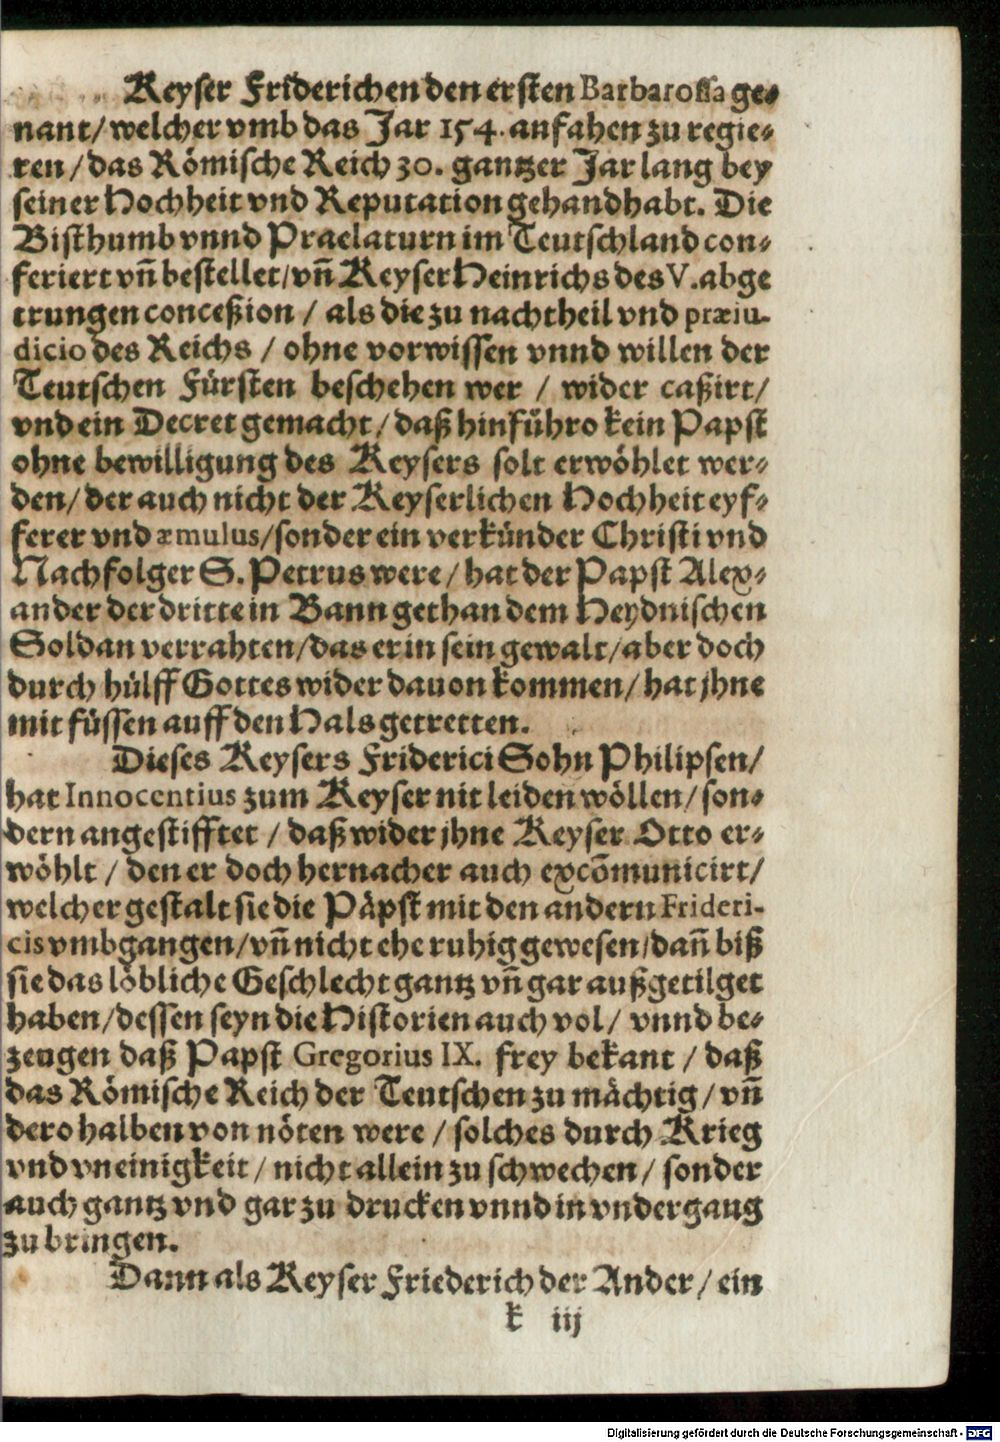 Keyser Friderichen den ersten Barbarossa ge-
nant/ welcher vmb das Jar 154. anfahen zu regie-
ren/ das Römische Reich 30. gantzer Jar lang bey
seiner Hochheit vnd Reputation gehandhabt. Die
Bisthumb vnnd Praelaturn im Teutschland con-
feriert vñ bestellet/ vñ Keyser Heinrichs des V. abge
trungen conceßion / als die zu nachtheil vnd præiu-
dicio des Reichs / ohne vorwissen vnnd willen der
Teutschen Fürsten beschehen wer / wider caßirt/
vnd ein Decret gemacht/ daß hinführo kein Papst
ohne bewilligung des Keysers solt erwöhlet wer-
den/ der auch nicht der Keyserlichen Hochheit eyf-
ferer vnd æmulus/ sonder ein verkünder Christi vnd
Nachfolger S. Petrus were/ hat der Papst Alex-
ander der dritte in Bann gethan dem Heydnischen
Soldan verrahten/ das er in sein gewalt/ aber doch
durch hülff Gottes wider dauon kommen/ hat jhne
mit füssen auff den Hals getretten.
Dieses Keysers Friderici Sohn Philipsen/
hat Innocentius zum Keyser nit leiden wöllen/ son-
dern angestifftet / daß wider jhne Keyser Otto er-
wöhlt / den er doch hernacher auch excõmunicirt/
welcher gestalt sie die Päpst mit den andern Frideri-
cis vmbgangen/ vñ nicht ehe ruhig gewesen/ dañ biß
sie das löbliche Geschlecht gantz vñ gar außgetilget
haben/ dessen seyn die Historien auch vol/ vnnd be-
zeugen daß Papst Gregorius IX. frey bekant / daß
das Römische Reich der Teutschen zu mächtig/ vñ
derohalben von nöten were / solches durch Krieg
vnd vneinigkeit/ nicht allein zu schwechen/ sonder
auch gantz vnd gar zu drucken vnnd in vndergang
zu bringen.
Dann als Keyser Friederich der Ander/ ein
k iij
Digitalisierung gefördert durch die Deutsche Forschungsgemeinschaft - DFG